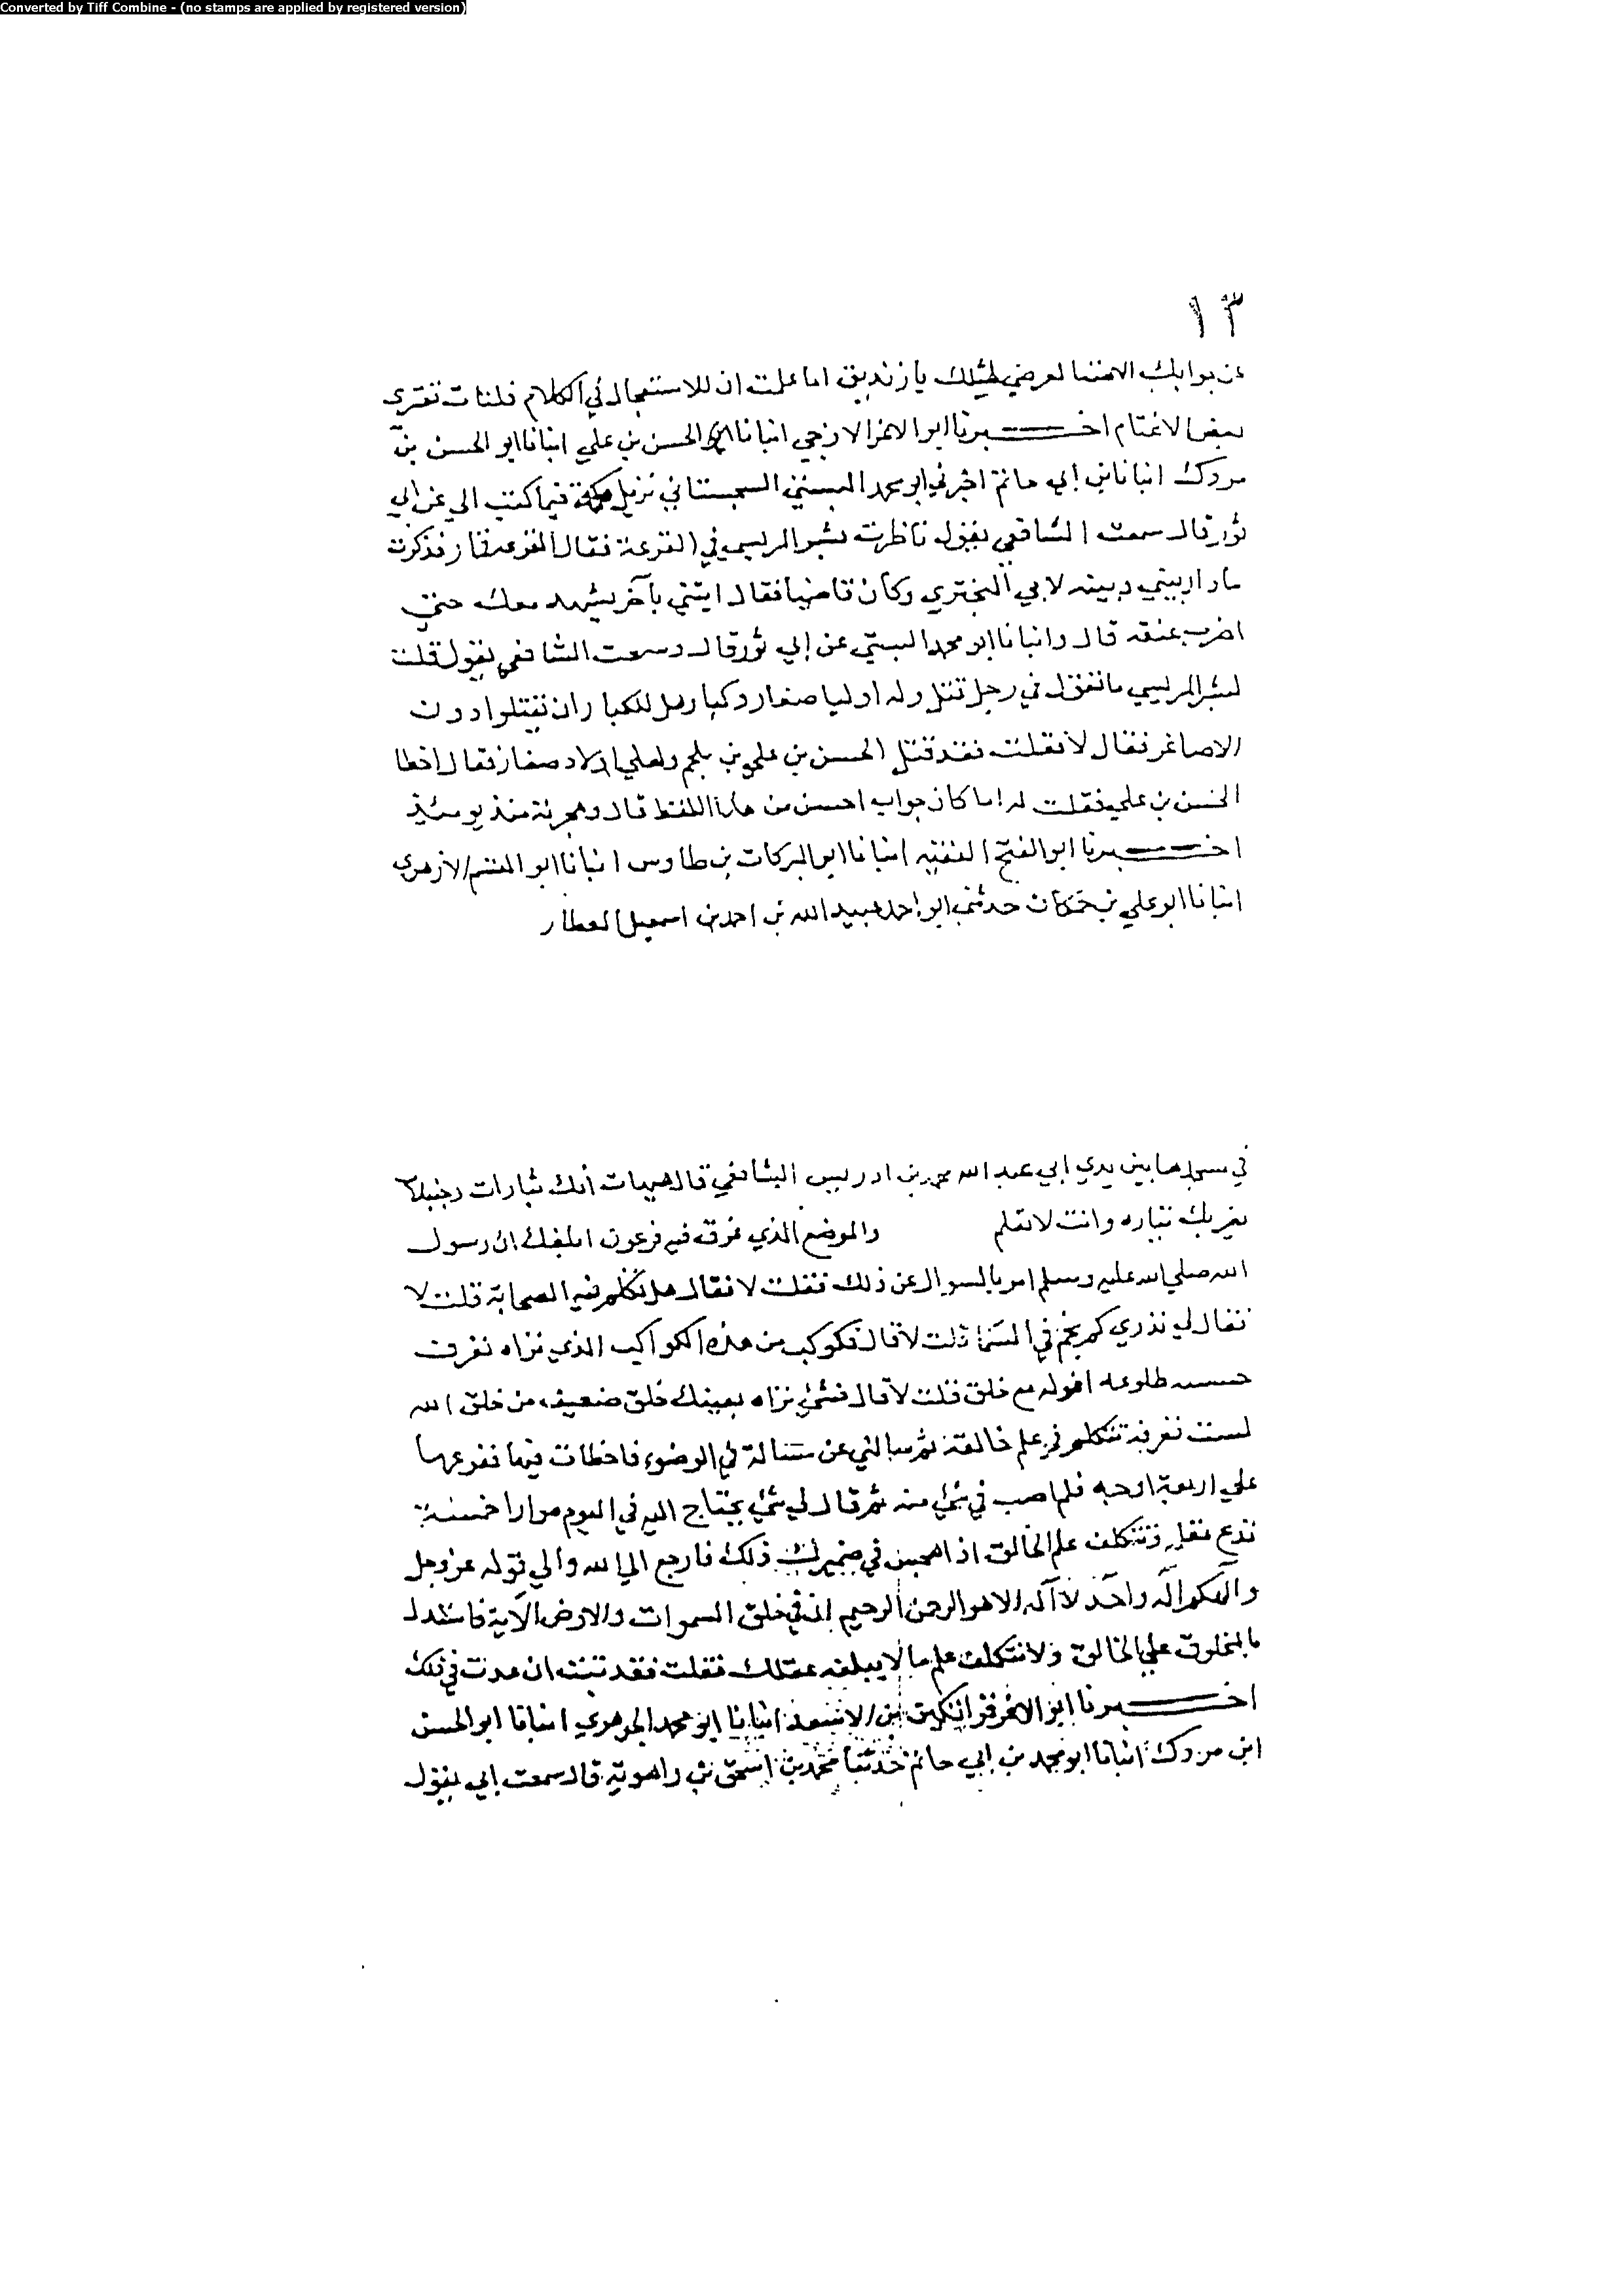 Converted by Tiff Combine - (no stamps are applied by registered version)
١٣
عن بوابك يا زنديق اما علمت ان للاستعجال في الكلام فلتات تعتري
بعض اخبرنا ابو الاعز الازجي انبانا الحسن بن علي انبانا ابو الحسن بن
مردك انبانا بن ابي حاتم اخبرني ابو محمد البستي السجستاني نزيل مكة فيما كتب الي عن ابي
ثور قال سمعت الشافعي يقول ناظرت بشر المريسي في القرعة فقال القرعة قمار فذكرت
ما دار بيني وبينه لابي البختري وكان قاضيا فقال ايتني بآخر يشهد معك حتى
اضرب عنقه قال وانبانا ابو محمد البستي عن ابي ثور قال وسمعت الشافعي يقول قلت
لبشر المريسي ما تقول في رجل قتل وله اوليا صغار وكبار هل للكبار ان يقتلوا دون
الاصاغر فقال لا فقلت فقد قتل الحسن بن علي بن ملجم ولعلي اولاد صغار فقال اخطا
الحسن بن علي فقلت له اما كان جواب احسن من هذا اللفظ قال وهجرته منذ يومئذ
اخبرنا ابو الفتح الفقيه انبانا ابو البركات بن طاوس انبانا ابو القسم الازهري
انبانا ابو علي بن حمكان حدثني ابو احمد عبيد الله بن احمد بن اسمعيل العطار
في مسجدها بين يدي ابي عبد الله محمد بن ادريس الشافعي قال هيهات انك
وانت لا تعلم والموضع الذي غرق فيه فرعون ابلغك ان رسول
الله صلي الله عليه وسلم امر بالسوال عن ذلك فقلت لا فقال هل تكلم فيه الصحابة قلت لا
فقال لي تدري كم نجم في السما قلت لا قال فكوكب من هذه الكواكب الذي تراه تعرف
جنسه طلوعه افوله مم خلق قلت لا قال فشئ تراه بعينك خلق ضعيف من خلق الله
لست تعرفه تتكلم في علم خالقه ثم سالني عن مسئالة في الوضوء فاخطات فيها ففرعها
علي اربعة اوجه فلم اصب في شئ منه ثم قال لي شئ يحتاج اليه في اليوم مرارا خمسة
تدع تتكلف علم الخالق اذا هجس في ضميرك ذلك فارجع الي الله والي قوله عز وجل
والهكم اله واحد لا اله الا هو الرحمن الرحيم ان في خلق السموات والارض الآية فاستدل
بالمخلوق علي الخالق ولا تتكلف علم ما لا يبلغه عقلك فقلت فقد تبت ان عدت في ذلك
اخبرنا ابو الاعز قراتكين بن الاسعد انبانا ابو محمد الجوهري انبانا ابو الحسن
ابن مردك انبانا ابو محمد بن ابي حاتم حدثنا محمد بن اسحق بن راهوية قال سمعت ابي يقول